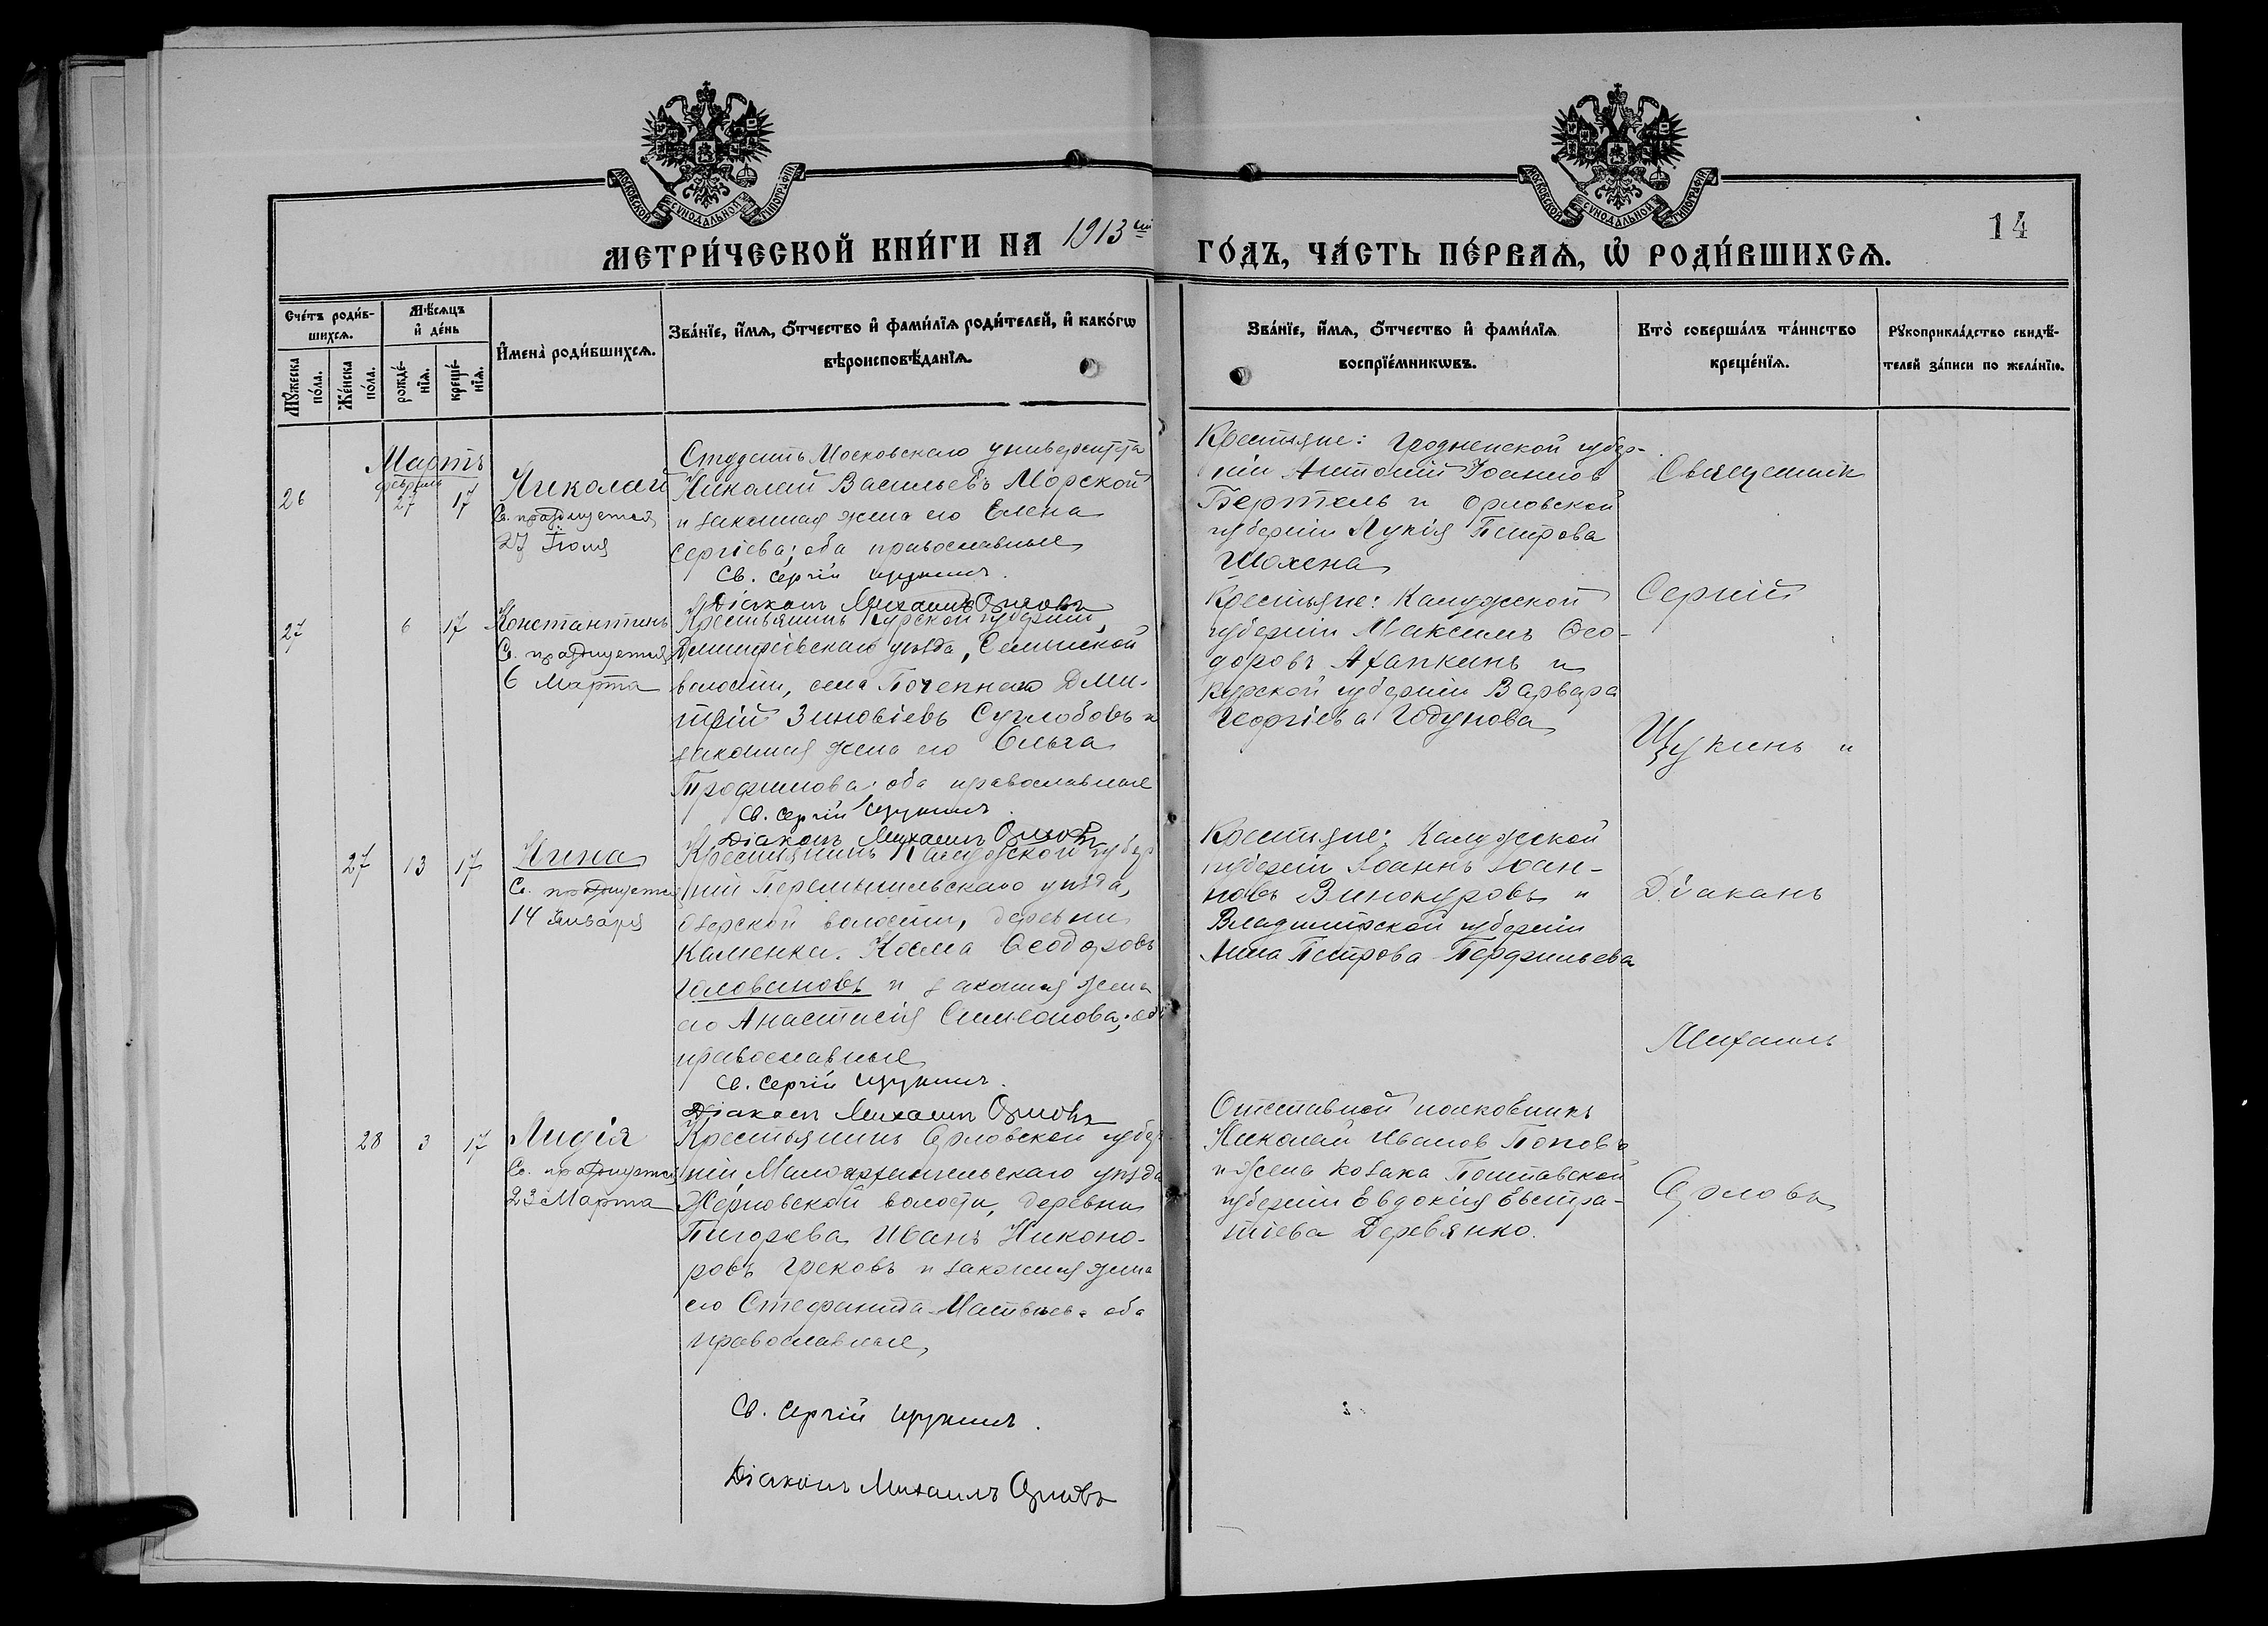 МОСКОВСКОЙ СѴНОДАЛЬНОЙ ТИПОГРАФІИ
МОСКОВСКОЙ СѴНОДАЛЬНОЙ ТИПОГРАФІИ
14
МЕТРИ́ЧЕСКОЙ КНИ́ГИ НА 1913ый ГО́ДЪ, ЧА́СТЬ ПЕ́РВАѦ, Ѡ҆ РОДИ́ВШИХСѦ.
Сче́тъ роди́в-
шихсѧ.
Мꙋ́жеска по́ла.
Же́нска по́ла.
Мѣ́сѧцъ
и҆ де́нь
рожде́-нїѧ.
креще́-нїѧ.
И҆мена̀ роди́вшихсѧ.
Зва́нїе, и҆́мѧ, ѻ҆́тчество и҆ фами́лїѧ роди́телей, и҆ како́гѡ
вѣроисповѣ́данїѧ.
Зва́нїе, и҆́мѧ, ѻ҆́тчество и҆ фами́лїѧ
воспрїе́мникѡвъ.
Кто̀ соверша́лъ та́инство
креще́нїѧ.
Рꙋкоприкла́дство свидѣ́-
телей за́писи по жела́нїю.
Мартъ
26
февраля
27
17
Николай
Св. празднуется
27 Іюля
Студентъ Московскаго университета
Николай Васильевъ Морской
и законная жена его Елена
Сергіева; оба православные
Св. Сергій Щукинъ.
Діаконъ Михаилъ Орловъ
Крестьяне: Гродненской губер-
ніи Антоній Іоаннов
Бертель и Орловской
губерніи Лукія Петрова
Шохена
Священник
27
6
17
Константинъ
Св. празднуется
6 Марта
Крестьянинъ Курской губерніи,
Дмитріевскаго уѣзда,
волости, села Почепнаго Дми-
трій Зиновіевъ Суглобовъ и
законная жена его Ольга
Трофимова; оба православные
Св. Сергій Щукинъ.
Діаконъ Михаилъ Орловъ
Крестьяне: Калужской
губерніи Максимъ Ѳео-
доровъ Агапкинъ и
Курской губерніи Варвара
Георгіева Годунова
Сергій
Щукинъ и
27
13
17
Нина
Св. празднуется
14 Января
Крестьянинъ Калужской губер
ніи Перемышльскаго уѣзда,
Озерской волости, деревни
Каменки. Косма Ѳеодоровъ
Головановъ и законная жена
его Анастасія Симеонова; об
православные
Св. Сергій Щукинъ.
Діаконъ Михаилъ Орловъ
Крестьяне: Калужской
губерніи Іоаннъ Іоан-
новъ Винокуровъ и
Владимірской губерніи
Анна Петрова Перфильева
Діаканъ
Михаилъ
28
3
17
Лидія
Св. празднуется
23 Марта
Крестьянинъ Орловской губер
ніи, Малоархангельскаго уѣзда
Жерновской волости, деревни
Пигорева Иванъ Никоно-
ровъ Грековъ и законная жена
его Стефанида Матвѣева оба
православные,
Св. Сергій Щукинъ.
Діаконъ Михаилъ Орловъ
Отставной полковникъ
Николай Иванов Поповъ
и жена козака Полтавской
губерніи Евдокія Евстра-
тіева Деревянко.
Орловъ